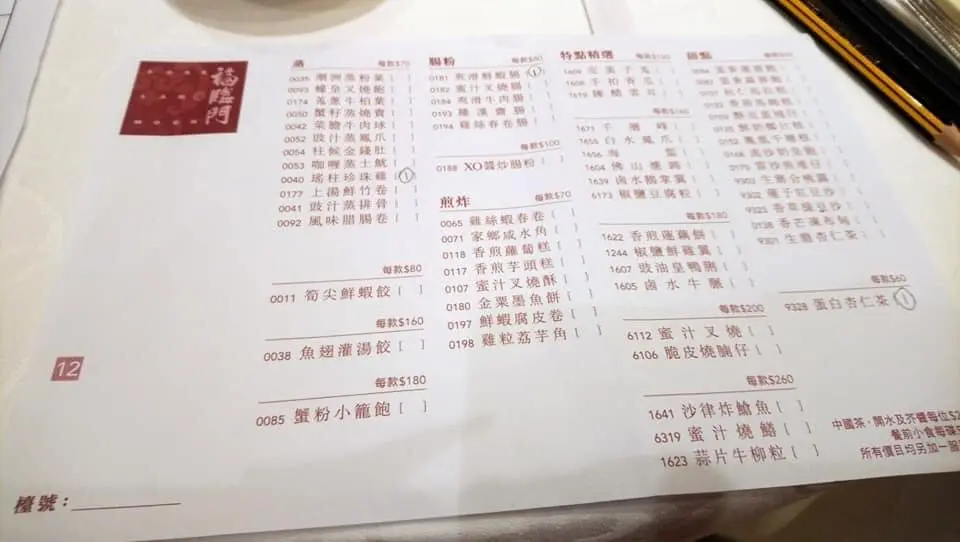 福臨門
蒸 每款$70
0035 潮洲蒸粉菓 [ ]
0093 蠔皇叉燒飽 [ ]
0174 薑蔥牛柏葉 [ ]
0050 蟹籽蒸燒賣 [ ]
0042 菜膽牛肉球 [ ]
0052 豉汁蒸鳳爪 [ ]
0054 柱候金錢肚 [ ]
0053 咖喱蒸土魷 [ ]
0040 瑤柱珍珠雞 [1]
0177 上湯鮮竹卷 [ ]
0041 豉汁蒸排骨 [ ]
0092 風味腊腸卷 [ ]
每款$80
0011 筍尖鮮蝦餃 [ ]
每款$160
0038 魚翅灌湯餃 [ ]
每款$180
0085 蟹粉小籠飽 [ ]
腸粉 每款$80
0181 爽滑鮮蝦腸 [1]
0182 蜜汁叉燒腸 [ ]
0184 爽滑牛肉腸 [ ]
0193 羅漢齋腸 [ ]
0194 雞絲春卷腸 [ ]
每款$100
0188 XO醬炒腸粉 [ ]
煎炸 每款$70
0065 雞絲蝦春卷 [ ]
0071 家鄉咸水角 [ ]
0118 香煎蘿蔔糕 [ ]
0117 香煎芋頭糕 [ ]
0107 蜜汁叉燒酥 [ ]
0180 金粟墨魚餅 [ ]
0197 鮮蝦腐皮卷 [ ]
0198 雞粒荔芋角 [ ]
特點精選
1671 千層峰 [ ]
1655 白水鳳爪 [ ]
1656 海蜇 [ ]
1604 佛山燻蹄 [ ]
1639 鹵水鵝掌翼 [ ]
6173 椒鹽豆腐粒 [ ]
每款$180
1622 香煎蓮藕餅 [ ]
1244 椒鹽鮮雞翼 [ ]
1607 豉油皇鴨脷 [ ]
1605 鹵水牛𦟌 [ ]
每款$200
6112 蜜汁叉燒 [ ]
6106 脆皮燒腩仔 [ ]
每款$260
1641 沙律炸鯧魚 [ ]
6319 蜜汁燒鱔 [ ]
1623 蒜片牛柳粒 [ ]
甜點
9301 生磨杏仁茶 [ ]
每款$60
9328 蛋白杏仁茶 [1]
中國茶，開水及芥醬每位$2
餐前小食每碟
所有價目均另加一
12
檯號：